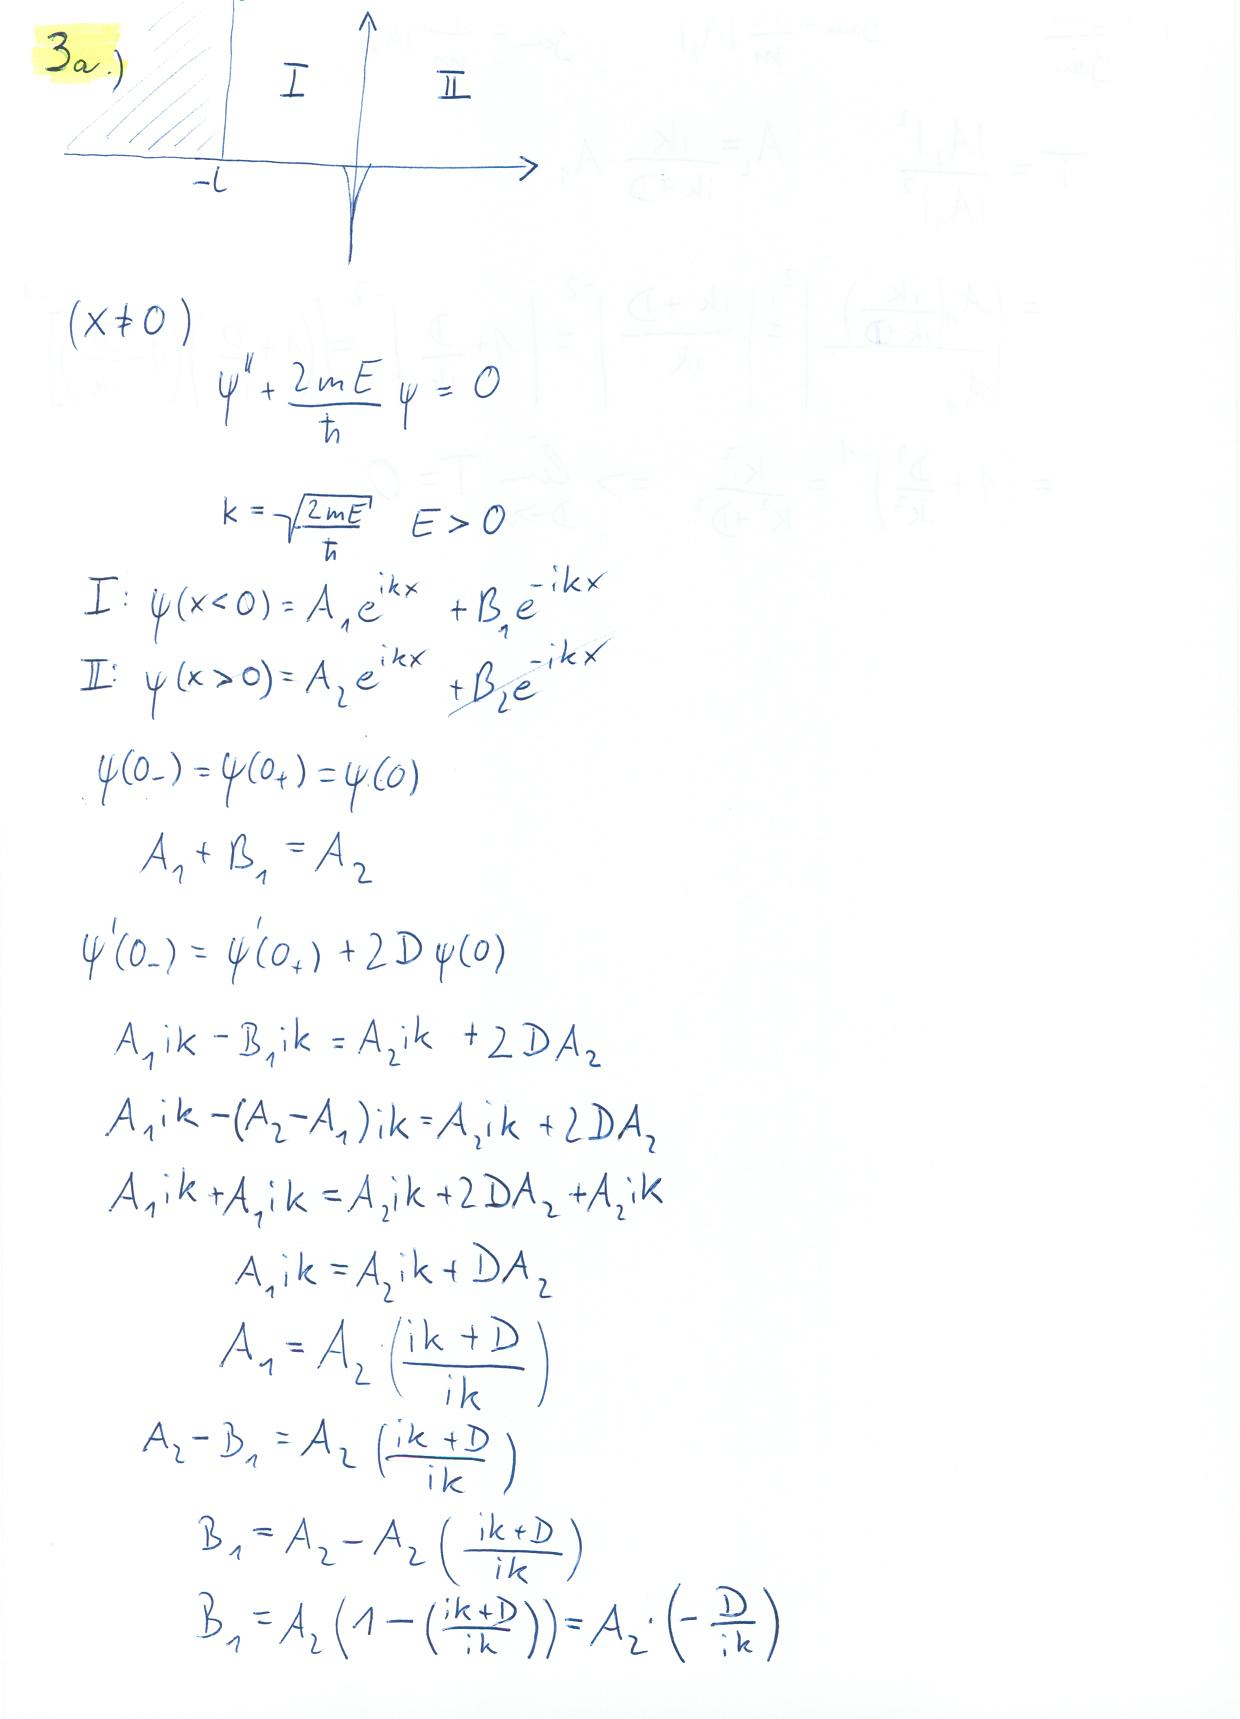 3a.)
I II
-l
(x ≠ 0)
ψ'' + 2mE/ħ ψ = 0
k = √(2mE)/ħ E > 0
I: ψ(x<0) = A₁e^{ikx} + B₁e^{-ikx}
II: ψ(x>0) = A₂e^{ikx} + B₂e^{-ikx}
ψ(0₋) = ψ(0₊) = ψ(0)
A₁ + B₁ = A₂
ψ'(0₋) = ψ'(0₊) + 2Dψ(0)
A₁ik - B₁ik = A₂ik + 2DA₂
A₁ik - (A₂ - A₁)ik = A₂ik + 2DA₂
A₁ik + A₁ik = A₂ik + 2DA₂ + A₂ik
A₁ik = A₂ik + DA₂
A₁ = A₂ · ((ik + D)/ik)
A₂ - B₁ = A₂ ((ik + D)/ik)
B₁ = A₂ - A₂ ((ik + D)/ik)
B₁ = A₂ (1 - ((ik + D)/ik)) = A₂ · (-D/ik)